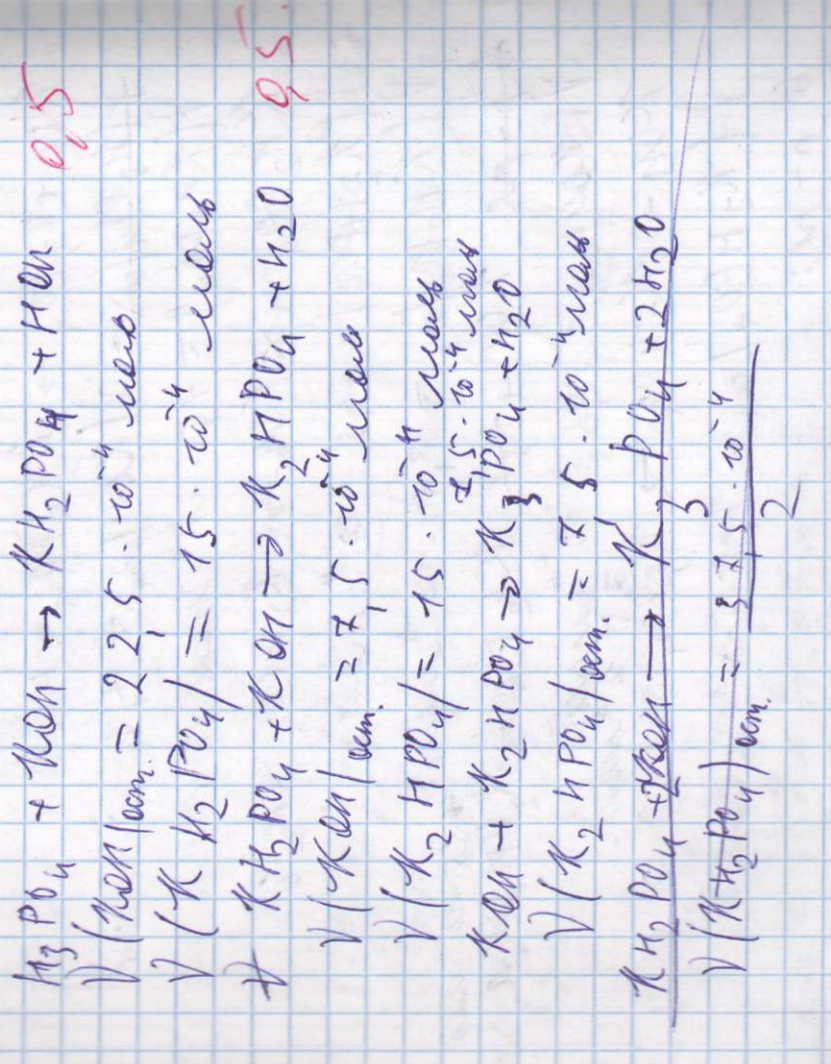 H₃PO₄ + KOH → KH₂PO₄ + HOH 0,5
ν(KOH)ост. = 22,5 · 10⁻⁴ моль
ν(KH₂PO₄) = 15 · 10⁻⁴ моль
KH₂PO₄ + KOH → K₂HPO₄ + H₂O 0,5
ν(KOH)ост. = 7,5 · 10⁻⁴ моль
ν(K₂HPO₄) = 15 · 10⁻⁴ моль
7,5 · 10⁻⁴ моль
KOH + K₂HPO₄ → K₃PO₄ + H₂O
ν(K₂HPO₄)ост. = 7,5 · 10⁻⁴ моль
KH₂PO₄ + 2KOH → K₃PO₄ + 2H₂O
ν(KH₂PO₄)ост. = 37,5 · 10⁻⁴ / 2